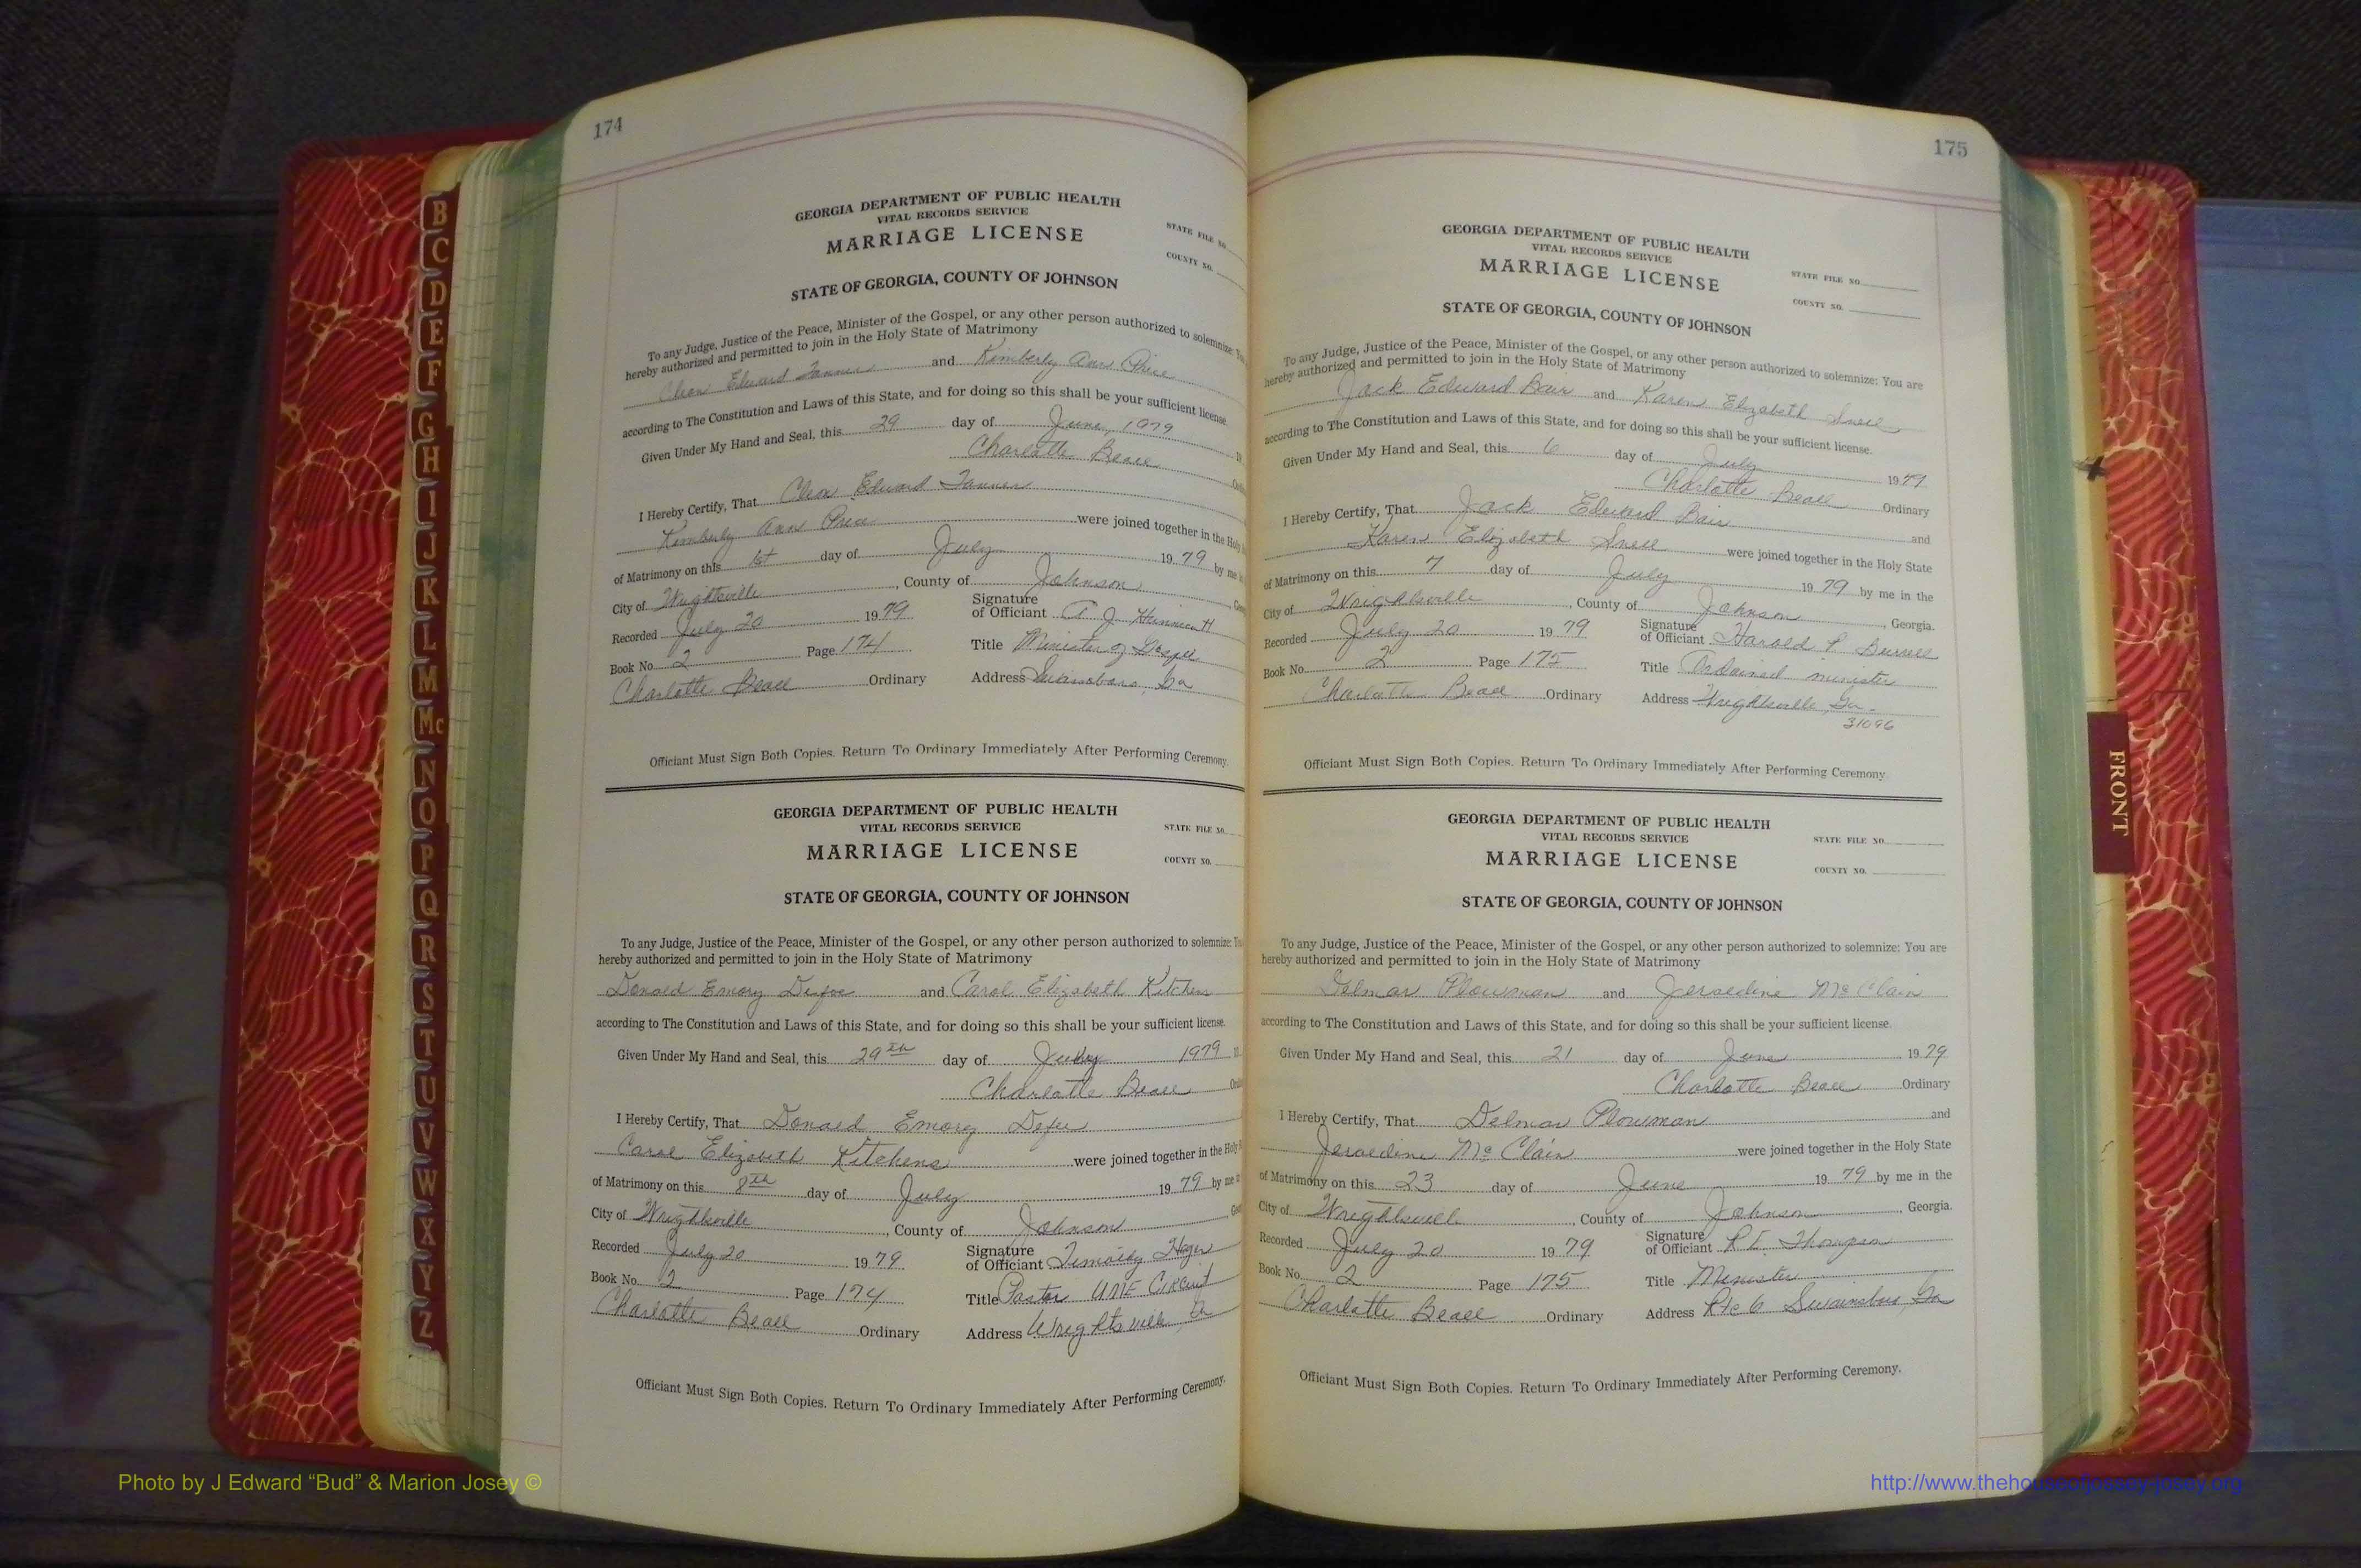 174
GEORGIA DEPARTMENT OF PUBLIC HEALTH
VITAL RECORDS SERVICE
MARRIAGE LICENSE
STATE FILE NO.
COUNTY NO.
STATE OF GEORGIA, COUNTY OF JOHNSON
To any Judge, Justice of the Peace, Minister of the Gospel, or any other person authorized to solemnize:
hereby authorized and permitted to join in the Holy State of Matrimony
Edward Tanner and Kimberly Ann Price
according to The Constitution and Laws of this State, and for doing so this shall be your sufficient license.
Given Under My Hand and Seal, this 29 day of June, 1979
Charlotte Beall
I Hereby Certify, That Edward Tanner
Kimberly Ann Price were joined together in the Holy
of Matrimony on this 1st day of July 1979 by me
City of Wrightsville, County of Johnson
Recorded July 20 1979 Signature of Officiant
Book No. 2 Page 174 Title Minister of Gospel
Charlotte Beall Ordinary Address Swainsboro, Ga
Officiant Must Sign Both Copies. Return To Ordinary Immediately After Performing Ceremony.
GEORGIA DEPARTMENT OF PUBLIC HEALTH
VITAL RECORDS SERVICE
MARRIAGE LICENSE
STATE FILE NO.
COUNTY NO.
STATE OF GEORGIA, COUNTY OF JOHNSON
To any Judge, Justice of the Peace, Minister of the Gospel, or any other person authorized to solemnize:
hereby authorized and permitted to join in the Holy State of Matrimony
Donald Emory and Carol Elizabeth Kitchens
according to The Constitution and Laws of this State, and for doing so this shall be your sufficient license.
Given Under My Hand and Seal, this 29th day of 1979
Charlotte Beall
I Hereby Certify, That Donald Emory
Carol Elizabeth Kitchens were joined together in the Holy
of Matrimony on this 8th day of July 1979 by me
City of Wrightsville, County of Johnson
Recorded July 20 1979 Signature of Officiant Timothy
Book No. 2 Page 174 Title Pastor Circuit
Charlotte Beall Ordinary Address Wrightsville,
Officiant Must Sign Both Copies. Return To Ordinary Immediately After Performing Ceremony.
175
GEORGIA DEPARTMENT OF PUBLIC HEALTH
VITAL RECORDS SERVICE
MARRIAGE LICENSE
STATE FILE NO.
COUNTY NO.
STATE OF GEORGIA, COUNTY OF JOHNSON
To any Judge, Justice of the Peace, Minister of the Gospel, or any other person authorized to solemnize: You are
hereby authorized and permitted to join in the Holy State of Matrimony
Jack Edward Bair and Karen Elizabeth Snell
according to The Constitution and Laws of this State, and for doing so this shall be your sufficient license.
Given Under My Hand and Seal, this 6 day of July 1979
Charlotte Beall Ordinary
I Hereby Certify, That Jack Edward Bair and
Karen Elizabeth Snell were joined together in the Holy State
of Matrimony on this 7 day of July 1979 by me in the
City of Wrightsville, County of Johnson, Georgia.
Recorded July 20 1979 Signature of Officiant Harold P.
Book No. 2 Page 175 Title Ordained minister
Charlotte Beall Ordinary Address Wrightsville, Ga.
31096
Officiant Must Sign Both Copies. Return To Ordinary Immediately After Performing Ceremony
GEORGIA DEPARTMENT OF PUBLIC HEALTH
VITAL RECORDS SERVICE
MARRIAGE LICENSE
STATE FILE NO.
COUNTY NO.
STATE OF GEORGIA, COUNTY OF JOHNSON
To any Judge, Justice of the Peace, Minister of the Gospel, or any other person authorized to solemnize: You are
hereby authorized and permitted to join in the Holy State of Matrimony
Plowman and Jeraedine McClain
according to The Constitution and Laws of this State, and for doing so this shall be your sufficient license.
Given Under My Hand and Seal, this 21 day of June 1979
Charlotte Beall Ordinary
I Hereby Certify, That Delmar Plowman and
Jeraedine McClain were joined together in the Holy State
of Matrimony on this 23 day of June 1979 by me in the
City of Wrightsville, County of Johnson, Georgia.
Recorded July 20 1979 Signature of Officiant R.E. Thompson
Book No. 2 Page 175 Title Minister
Charlotte Beall Ordinary Address Rte 6 Swainsboro Ga
Officiant Must Sign Both Copies. Return To Ordinary Immediately After Performing Ceremony.
B
C
D
E
F
G
H
I
J
K
L
M
Mc
N
O
P
Q
R
S
T
U
V
W
X
Y
Z
FRONT
Photo by J Edward “Bud” & Marion Josey ©
http://www.thehouseofjossey-josey.org